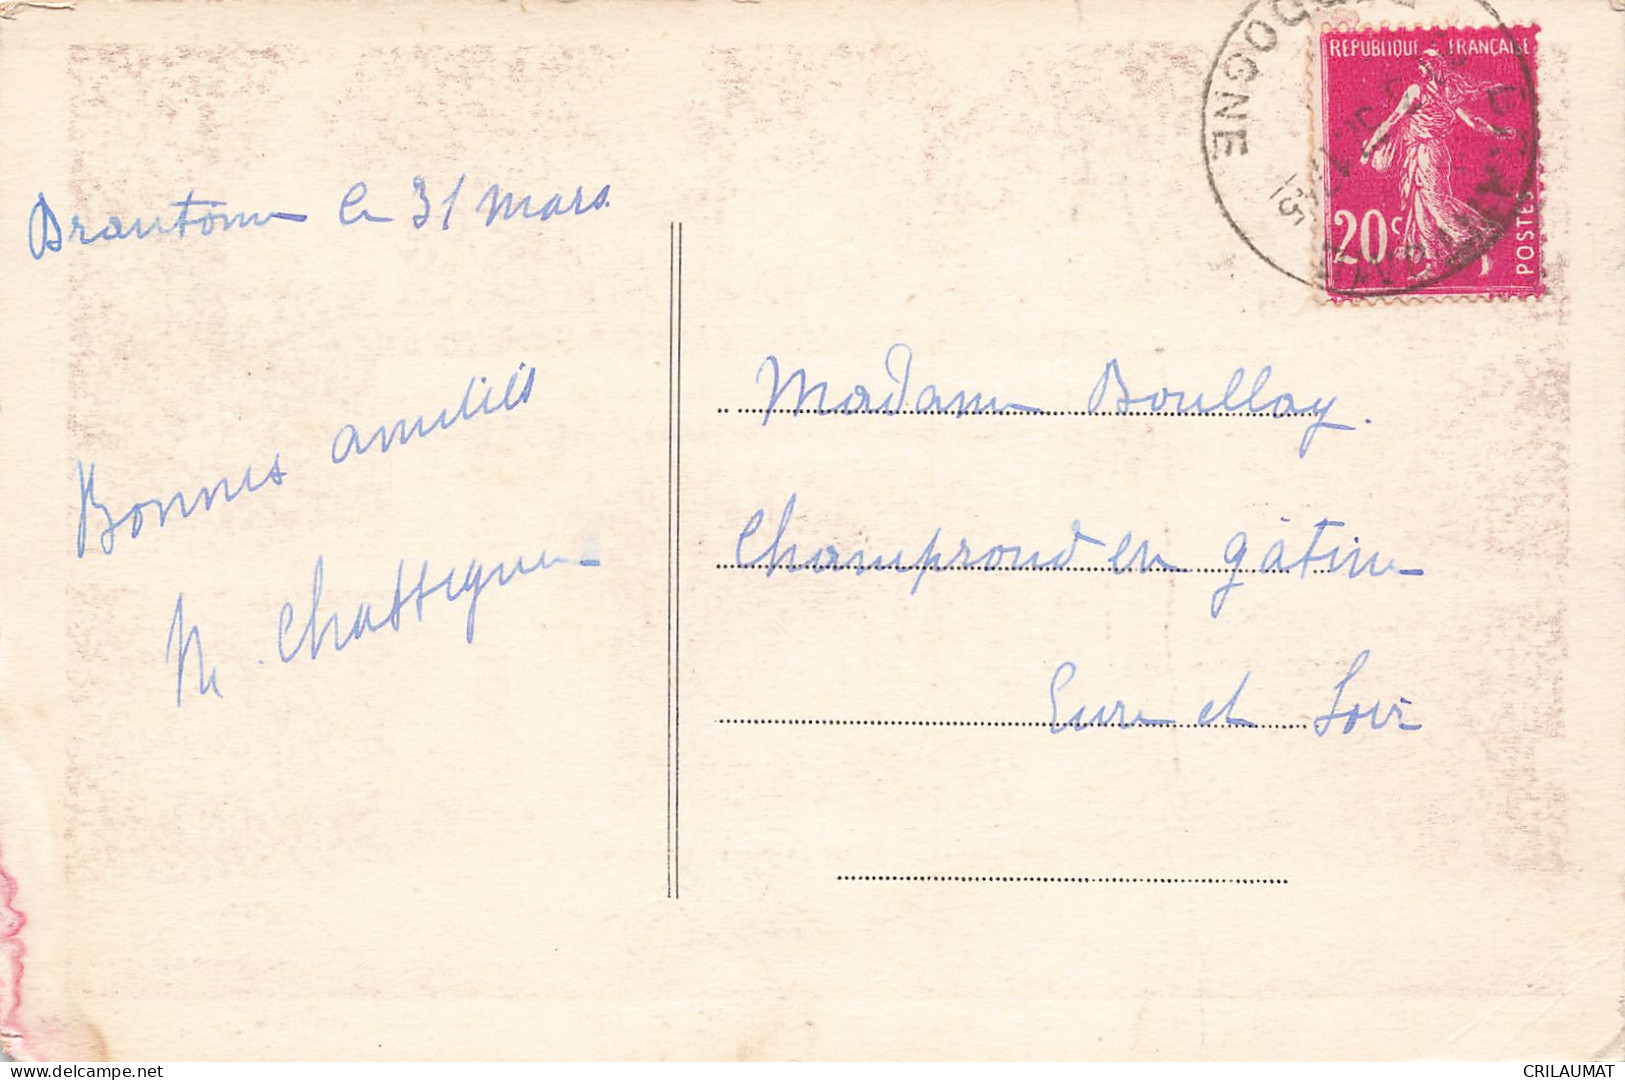 Brantome le 31 Mars
Bonnes amitiés
M. Chassigne
RÉPUBLIQUE FRANÇAISE
20c
POSTES
DORDOGNE
Madame Boullay.
Champrond en gâtine
Eure et Loir
delcampe.net
CRILAUMAT